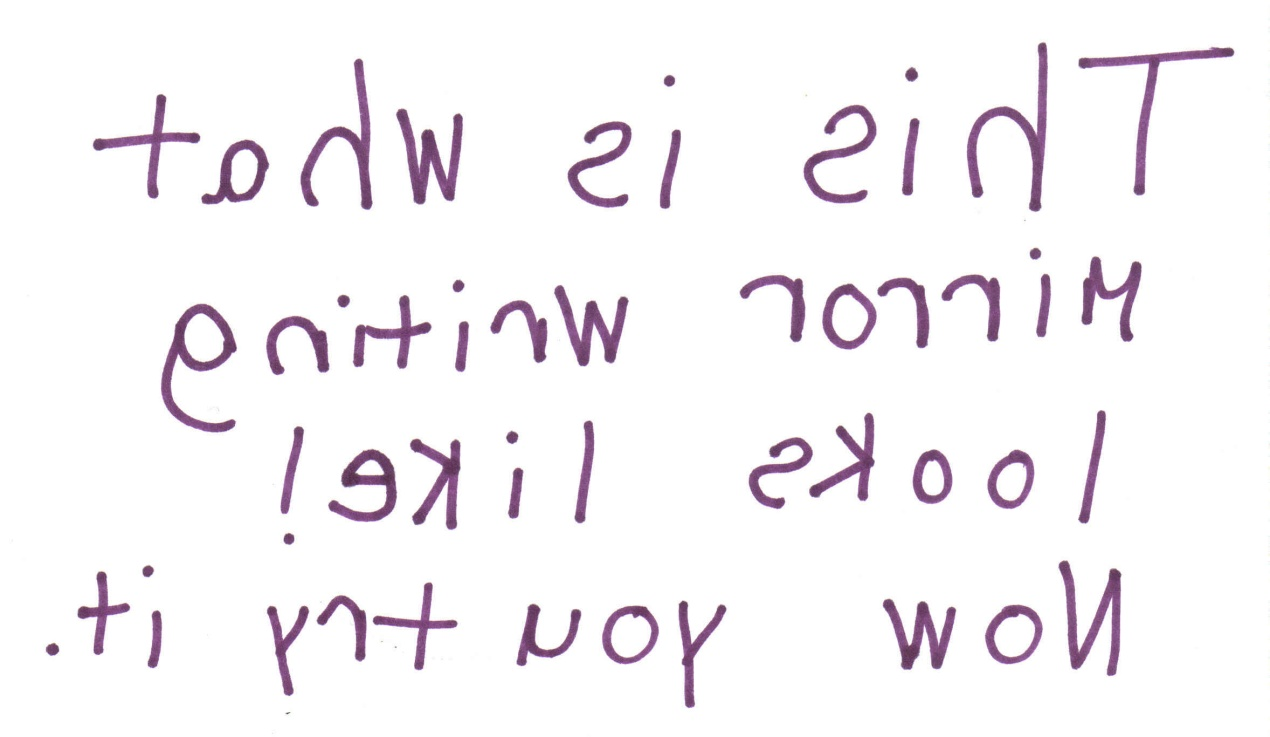 This is what
Mirror writing
looks like!
Now you try it.